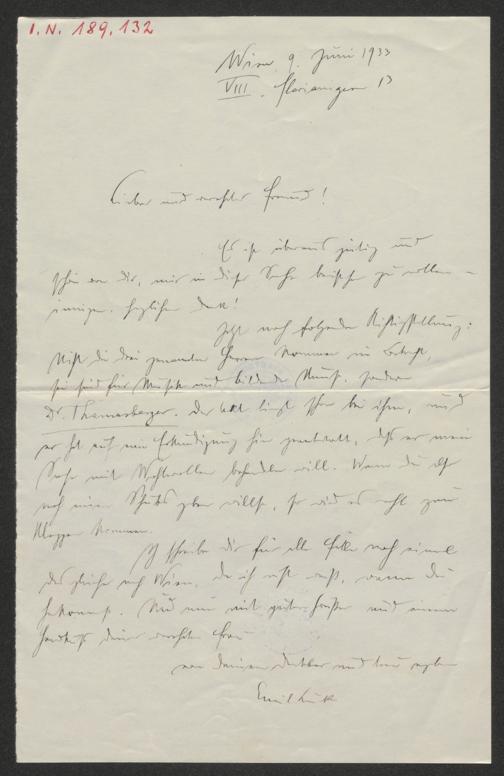 I. N. 189.132
Wien 9. Juni 1933
VIII. Florianigasse 13
Lieber und verehrter Freund!
Es ist überaus gütig und
schön von dir, mir in dieser Sache beistehen zu wollen –
innigen, herzlichen Dank!
Jetzt noch folgende Richtigstellung:
Nicht die drei genannten Herren kommen in Betracht,
sie sind für Musik und bildende Kunst, sondern
Dr. Thomasberger. Der Akt liegt schon bei ihm, und
er hat auf eine Erkundigung hin geantwortet, daß er meine
Sache mit Wohlwollen behandeln will. Wenn du
noch einen geben willst, so wird es wohl zum
Klappen kommen.
Ich schreibe dir für alle Fälle noch einmal
das gleiche nach Wien, da ich nicht weiß, wann du
Und nun mit guten Grüßen und einem
Handkuß deiner verehrten Frau
von deinem dankbar und treu
Emil Lucka